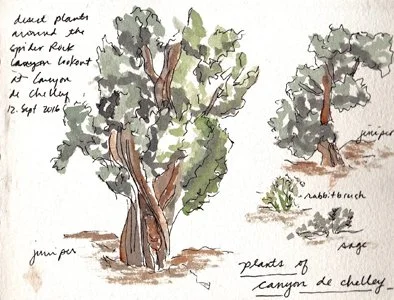 desert plants
around the
spider Rock
Canyon lookout
at Canyon
de Chelley
12. Sept 2016
juniper
juniper
rabbitbrush
sage
plants of
canyon de chelley